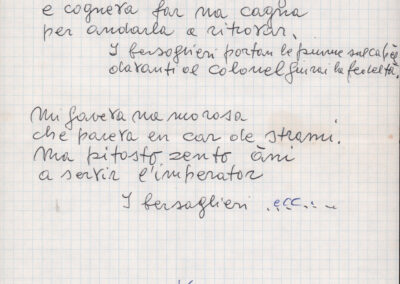 e cognera far na cagna
per andarla a ritrovar.
I bersaglieri portan le piume sul capèl
davanti al colonel giurai la fedeltà.
Mi gavera na morosa
che pareva en car de strami.
Ma pitosto zento àni
a servir l'imperator
I bersaglieri .ecc.. ..